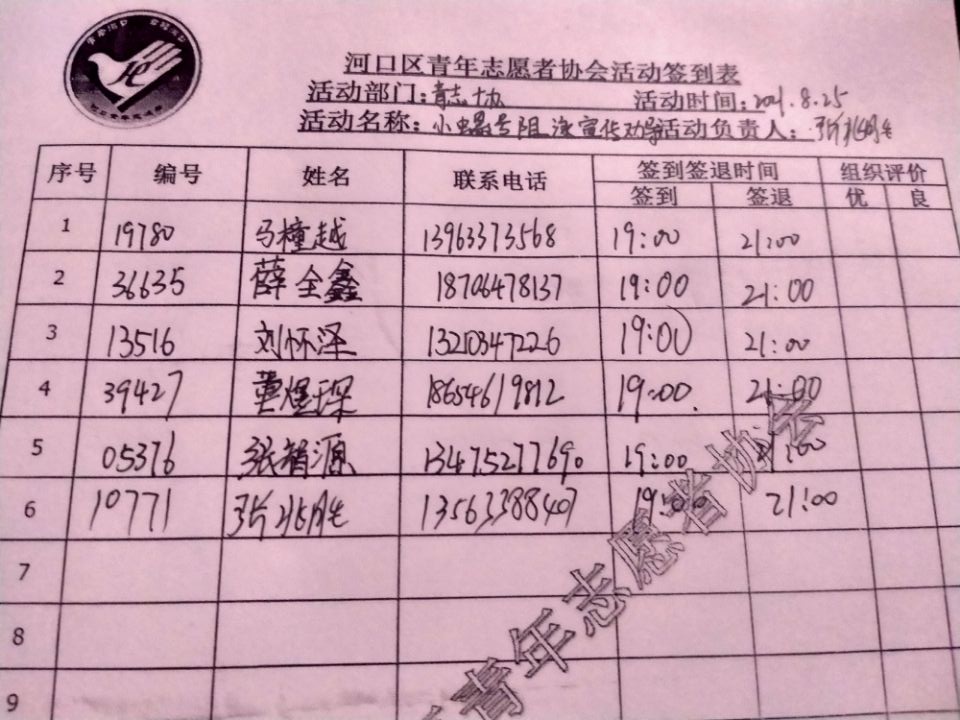 河口区青年志愿者协会活动签到表
活动部门：青志协 活动时间：2021.8.25
活动名称：小 号 阻 泳宣传劝导 活动负责人：
序号 编号 姓名 联系电话 签到签退时间 组织评价
签到 签退 优 良
1 19780 马橦越 13963373568 19:00 21:00
2 36635 薛全鑫 18706478137 19:00 21:00
3 13516 刘怀泽 13210347226 19:00 21:00
4 39427 董煜琛 18654619812 19:00 21:00
5 05376 张智源 13475277690 19:00 21:00
6 10771 13563388407 19:00 21:00
7
8
9
青年志愿者协会